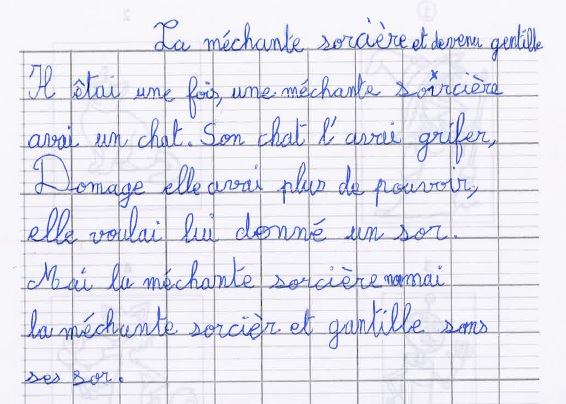 La méchante sorcière et devenu gentille
Il êtai une fois, une méchante soircière
avai un chat. Son chat l'avai grifer,
Domage elle avai plus de pouvoir,
elle voulai lui donné un sor.
Mai la méchante sorcière mai
la méchante sorcièr et gantille sans
ses sor.